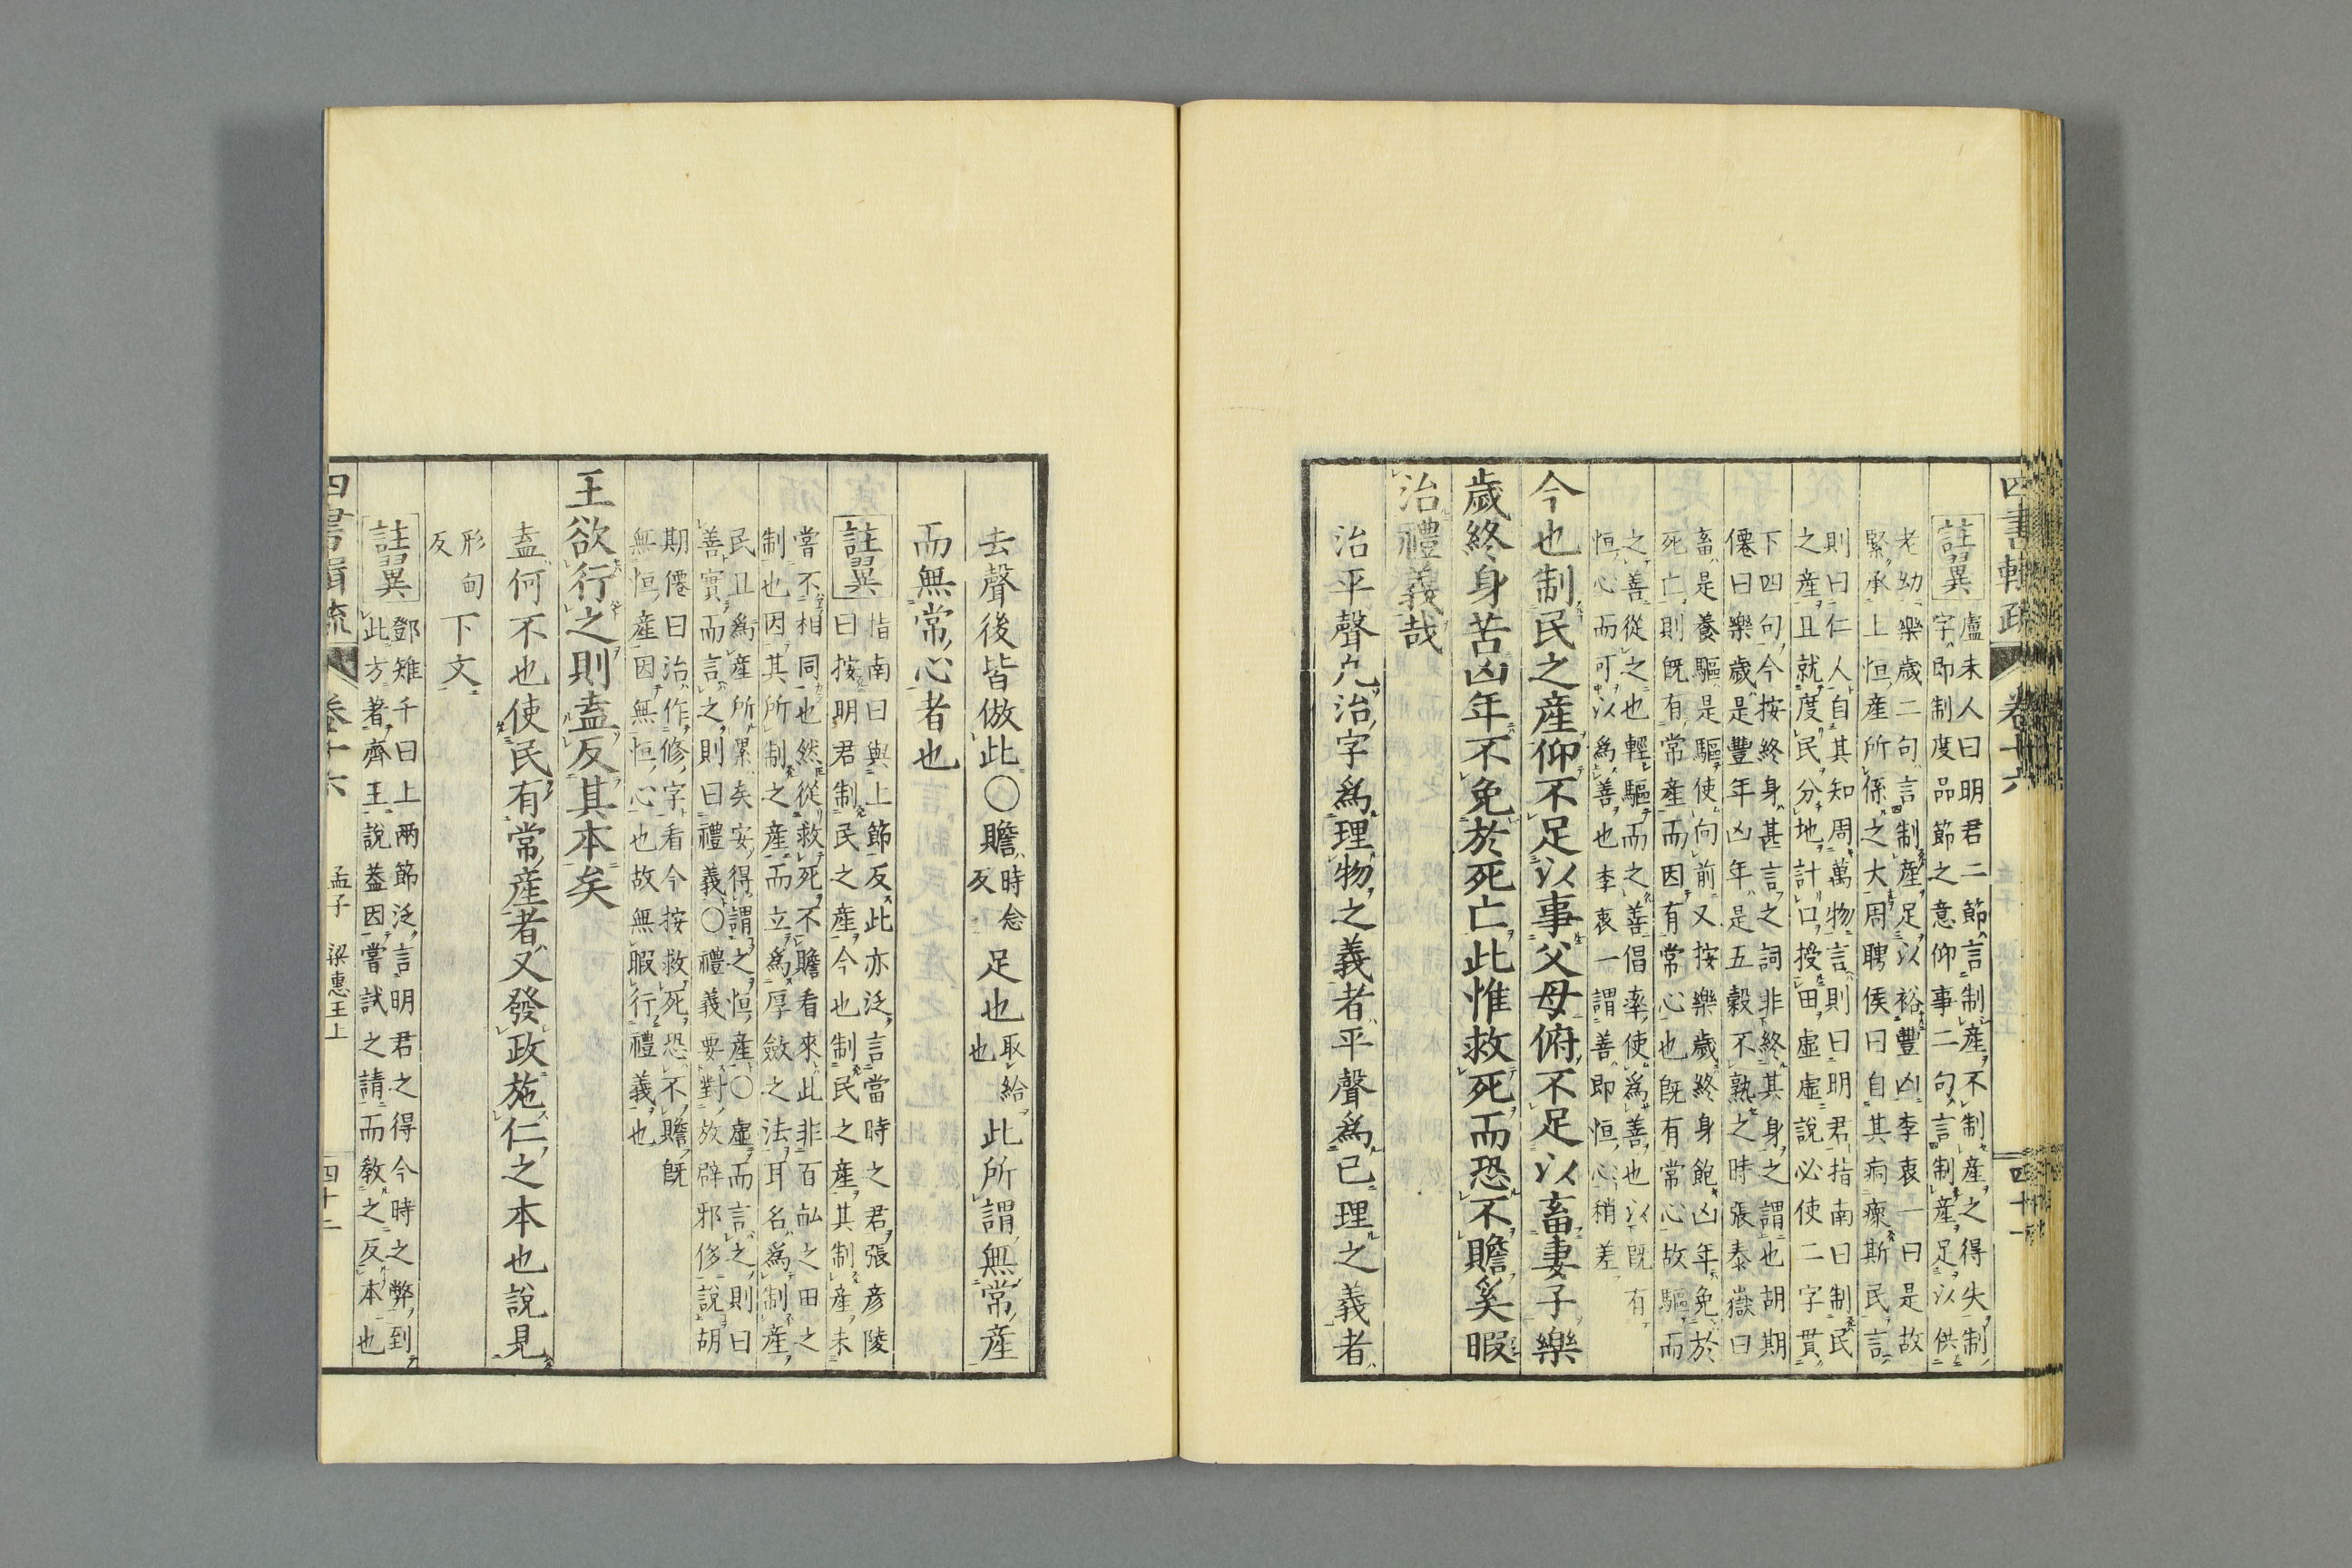 四書輯疏 卷十六 四十一
註翼
盧未人曰明君二節言制産不制産之得失制
字即制度品節之意仰事二句言制産足以供
老幼樂歳二句言制産足以裕豐凶李衷一曰是故
緊承上恒産所係之大周聘侯曰自其痌瘝斯民言
則曰仁人自其知周萬物言則曰明君指南曰制民
之産且就度民分地計口授田虛虛說必使二字貫
下四句今按終身甚言之詞非終其身之謂也胡期
僊曰樂歳是豐年凶年是五穀不熟之時張泰嶽曰
畜是養驅是驅使向前又按樂歳終身飽凶年免於
死亡則既有常産而因有常心也既有常心故驅而
之善從之也輕驅而之善倡率使爲善也以既有
恒心而可以爲善也李衷一謂善即恒心稍差
今也制民之産仰不足以事父母俯不足以畜妻子樂
歳終身苦凶年不免於死亡此惟救死而恐不贍奚暇
治禮義哉
治平聲凢治字爲理物之義者平聲爲已理之義者
去聲後皆倣此○贍時念反足也取給也此所謂無常産
而無常心者也
註翼
指南曰與上節反此亦泛言當時之君張彦陵
曰按明君制民之産今也制民之産其制産未
嘗不相同也然從救死不贍看來此非百畝之田之
制也因其所制之産而立爲厚斂之法耳名爲制産
民且爲産所累矣安得謂之恒産○虛而言之則曰
善實而言之則曰禮義○禮義要對放辟邪侈說胡
期僊曰治作修字看今按救死恐不贍既
無恒産因無恒心也故無暇行禮義也
王欲行之則盍反其本矣
盍何不也使民有常産者又發政施仁之本也說見
形甸反下文
註翼
鄧雉千曰上兩節泛言明君之得今時之弊到
此方著齊王說葢因嘗試之請而敎之反本也
四書輯疏 卷十六 孟子 梁惠王上 四十二